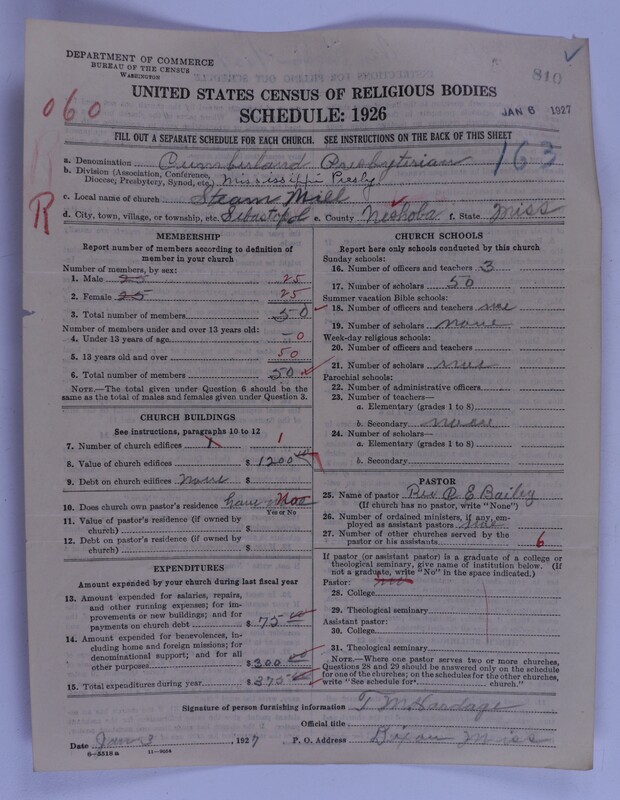 DEPARTMENT OF COMMERCE
BUREAU OF THE CENSUS
WASHINGTON
810
060
UNITED STATES CENSUS OF RELIGIOUS BODIES
SCHEDULE: 1926
JAN 6 1927
FILL OUT A SEPARATE SCHEDULE FOR EACH CHURCH. SEE INSTRUCTIONS ON THE BACK OF THIS SHEET
163
R
a. Denomination Cumberland Presbyterian
b. Division (Association, Conference, Diocese, Presbytery, Synod, etc.) Mississippi Presby
c. Local name of church Steam Mill
d. City, town, village, or township, etc. Sebastopol e. County Neshoba f. State Miss
MEMBERSHIP
Report number of members according to definition of
member in your church
Number of members, by sex:
1. Male 25 25
2. Female 25 25
3. Total number of members 50
Number of members under and over 13 years old:
4. Under 13 years of age 0
5. 13 years old and over 50
6. Total number of members 50
NOTE.—The total given under Question 6 should be the
same as the total of males and females given under Question 3.
CHURCH BUILDINGS
See instructions, paragraphs 10 to 12
7. Number of church edifices 1 1
8. Value of church edifices $ 1200
9. Debt on church edifices None $
10. Does church own pastor's residence have No
Yes or No
11. Value of pastor's residence (if owned by
church) $
12. Debt on pastor's residence (if owned by
church) $
EXPENDITURES
Amount expended by your church during last fiscal year
13. Amount expended for salaries, repairs,
and other running expenses; for im-
provements or new buildings; and for
payments on church debt $ 75
14. Amount expended for benevolences,
including home and foreign missions; for
denominational support; and for all
other purposes $ 300
15. Total expenditures during year $ 375
CHURCH SCHOOLS
Report here only schools conducted by this church
Sunday schools:
16. Number of officers and teachers 3
17. Number of scholars 50
Summer vacation Bible schools:
18. Number of officers and teachers none
19. Number of scholars none
Week-day religious schools:
20. Number of officers and teachers
21. Number of scholars none
Parochial schools:
22. Number of administrative officers
23. Number of teachers—
a. Elementary (grades 1 to 8)
b. Secondary none
24. Number of scholars—
a. Elementary (grades 1 to 8)
b. Secondary
PASTOR
25. Name of pastor Rev R. E. Bailey
(If church has no pastor, write "None")
26. Number of ordained ministers, if any, em-
ployed as assistant pastors
27. Number of other churches served by the
pastor or his assistants 6
If pastor (or assistant pastor) is a graduate of a college or
theological seminary, give name of institution below. (If
not a graduate, write "No" in the space indicated.)
Pastor: no
28. College
29. Theological seminary
Assistant pastor:
30. College
31. Theological seminary
NOTE.—Where one pastor serves two or more churches,
Questions 28 and 29 should be answered only on the schedule
for one of the churches; on the schedules for the other churches,
write "See schedule for church."
Signature of person furnishing information T M Hardage
Official title
Date Jan 3 1927 P. O. Address Dixon Miss
8-5518 a 11-9084